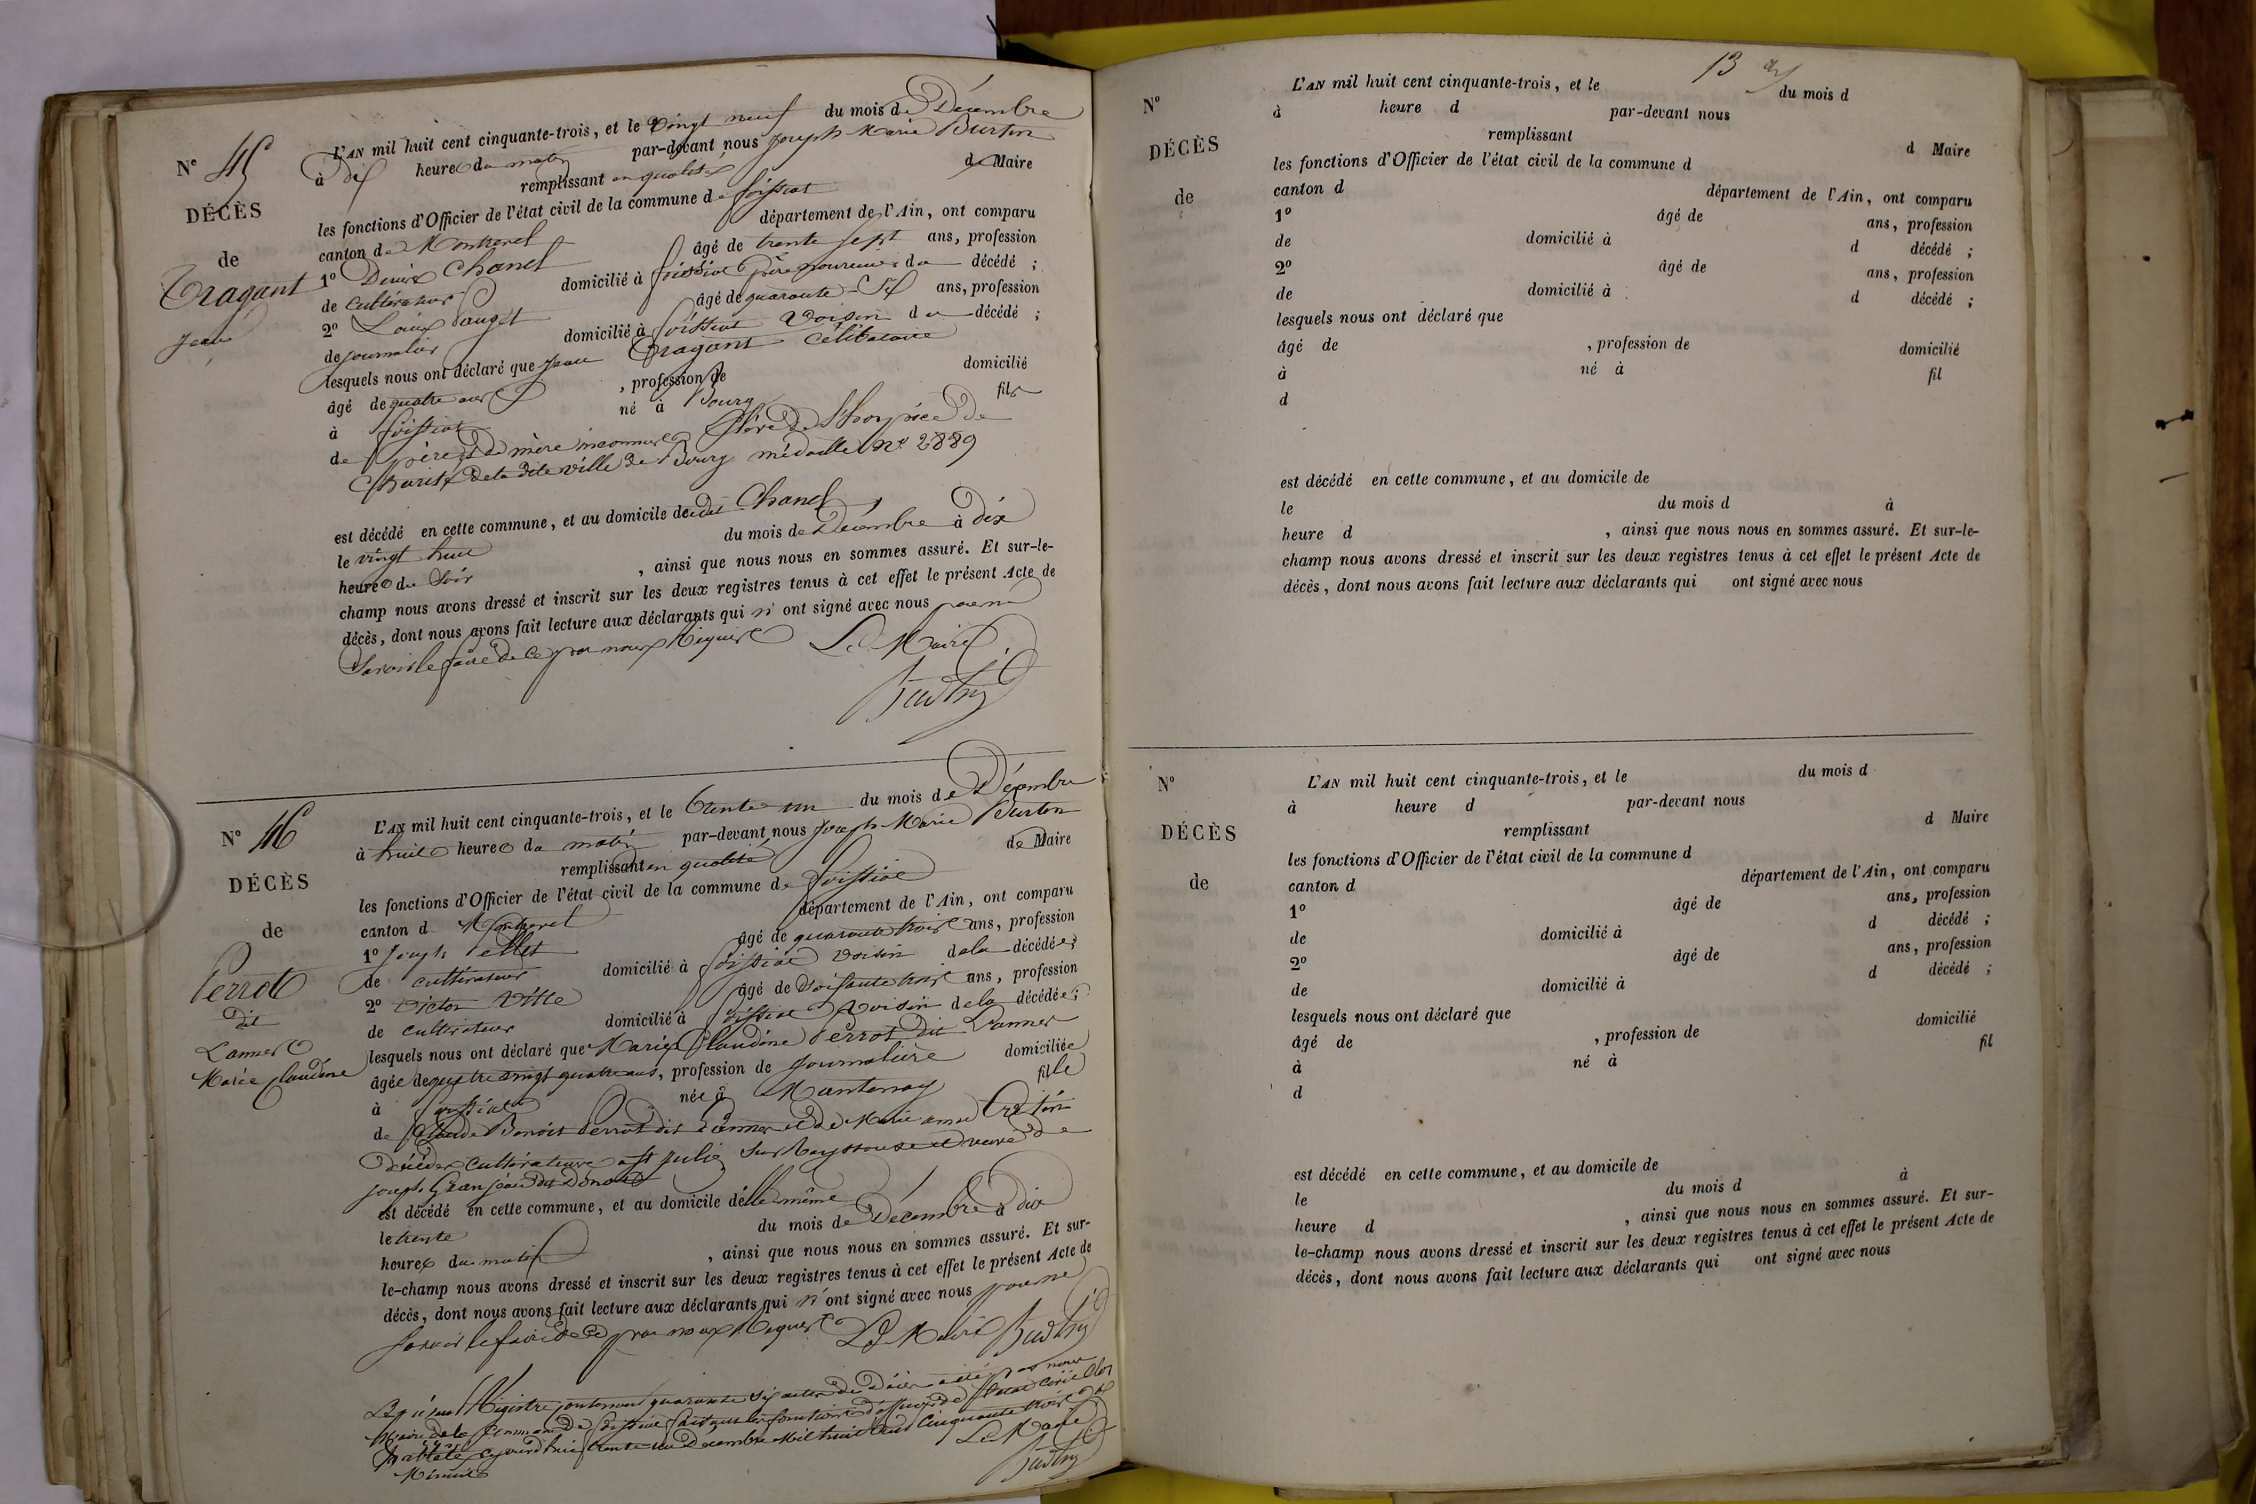 N° 45
DÉCÈS
de
Tragant
Jean
L'AN mil huit cent cinquante-trois, et le vingt neuf du mois de Décembre
à dix heures du matin par-devant nous Joseph Marie Burtin
remplissant en qualité de Maire
les fonctions d'Officier de l'état civil de la commune de Foissiat
canton de Montrevel département de l'Ain, ont comparu
1° Denis Chanel âgé de trente sept ans, profession
de cultivateur domicilié à Foissiat père nourricier du décédé ;
2° Louis Pauget âgé de quarante-six ans, profession
de journalier domicilié à Foissiat voisin du décédé ;
lesquels nous ont déclaré que Jean Tragant célibataire
âgé de quatre ans , profession de domicilié
à Foissiat né à Bourg fils
de père et de mère inconnus élève de l'hospice de
Charité de la dite ville de Bourg médaille N° 2889
est décédé en cette commune, et au domicile dudit Chanel
le vingt huit du mois de Décembre à dix
heures du soir , ainsi que nous nous en sommes assuré. Et sur-le-
champ nous avons dressé et inscrit sur les deux registres tenus à cet effet le présent Acte de
décès, dont nous avons fait lecture aux déclarants qui n'ont signé avec nous pour ne
savoir le faire de ce par nous Requis Le Maire
Burtin
N° 46
DÉCÈS
de
Perrot
dit
Lanner
Marie Claudine
L'AN mil huit cent cinquante-trois, et le trente un du mois de Décembre
à huit heures du matin par-devant nous Joseph Marie Burtin
remplissant en qualité de Maire
les fonctions d'Officier de l'état civil de la commune de Foissiat
canton d Montrevel département de l'Ain, ont comparu
1° Joseph Pellet âgé de quarante trois ans, profession
de cultivateur domicilié à Foissiat voisin de la décédée ;
2° Victor Ville âgé de soixante trois ans, profession
de cultivateur domicilié à Foissiat voisin de la décédée ;
lesquels nous ont déclaré que Marie Claudine Perrot dit Lanner
âgée de quatre vingt quatre ans, profession de journalière domiciliée
à Foissiat née à Mantenay fille
de Claude Benoit Perrot dit Lanner et de Marie anne
décédés cultivateurs à St Julien sur Reyssouze et veuve de
Joseph Granjean dit Donard
est décédé en cette commune, et au domicile d'elle même
le trente du mois de Décembre à dix
heures du matin , ainsi que nous nous en sommes assuré. Et sur-
le-champ nous avons dressé et inscrit sur les deux registres tenus à cet effet le présent Acte de
décès, dont nous avons fait lecture aux déclarants qui n'ont signé avec nous pour ne
savoir le faire de ce par nous Requis Le Maire Burtin
Le présent Registre contenant quarante six actes de Décès a été par nous
Maire de la Commune de Foissiat faisant les fonctions d'officier de l'état civil Clos
et arrêté cejourd'hui trente un Décembre Mil huit Cent Cinquante trois
Le Maire
Burtin
13
N°
DÉCÈS
de
L'AN mil huit cent cinquante-trois, et le du mois d
à heure d par-devant nous
remplissant d Maire
les fonctions d'Officier de l'état civil de la commune d
canton d département de l'Ain, ont comparu
1° âgé de ans, profession
de domicilié à d décédé ;
2° âgé de ans, profession
de domicilié à d décédé ;
lesquels nous ont déclaré que
âgé de , profession de domicilié
à né à fil
d
est décédé en cette commune, et au domicile de
le du mois d à
heure d , ainsi que nous nous en sommes assuré. Et sur-le-
champ nous avons dressé et inscrit sur les deux registres tenus à cet effet le présent Acte de
décès, dont nous avons fait lecture aux déclarants qui ont signé avec nous
N°
DÉCÈS
de
L'AN mil huit cent cinquante-trois, et le du mois d
à heure d par-devant nous
remplissant d Maire
les fonctions d'Officier de l'état civil de la commune d
canton d département de l'Ain, ont comparu
1° âgé de ans, profession
de domicilié à d décédé ;
2° âgé de ans, profession
de domicilié à d décédé ;
lesquels nous ont déclaré que
âgé de , profession de domicilié
à né à fil
d
est décédé en cette commune, et au domicile de
le du mois d à
heure d , ainsi que nous nous en sommes assuré. Et sur-
le-champ nous avons dressé et inscrit sur les deux registres tenus à cet effet le présent Acte de
décès, dont nous avons fait lecture aux déclarants qui ont signé avec nous